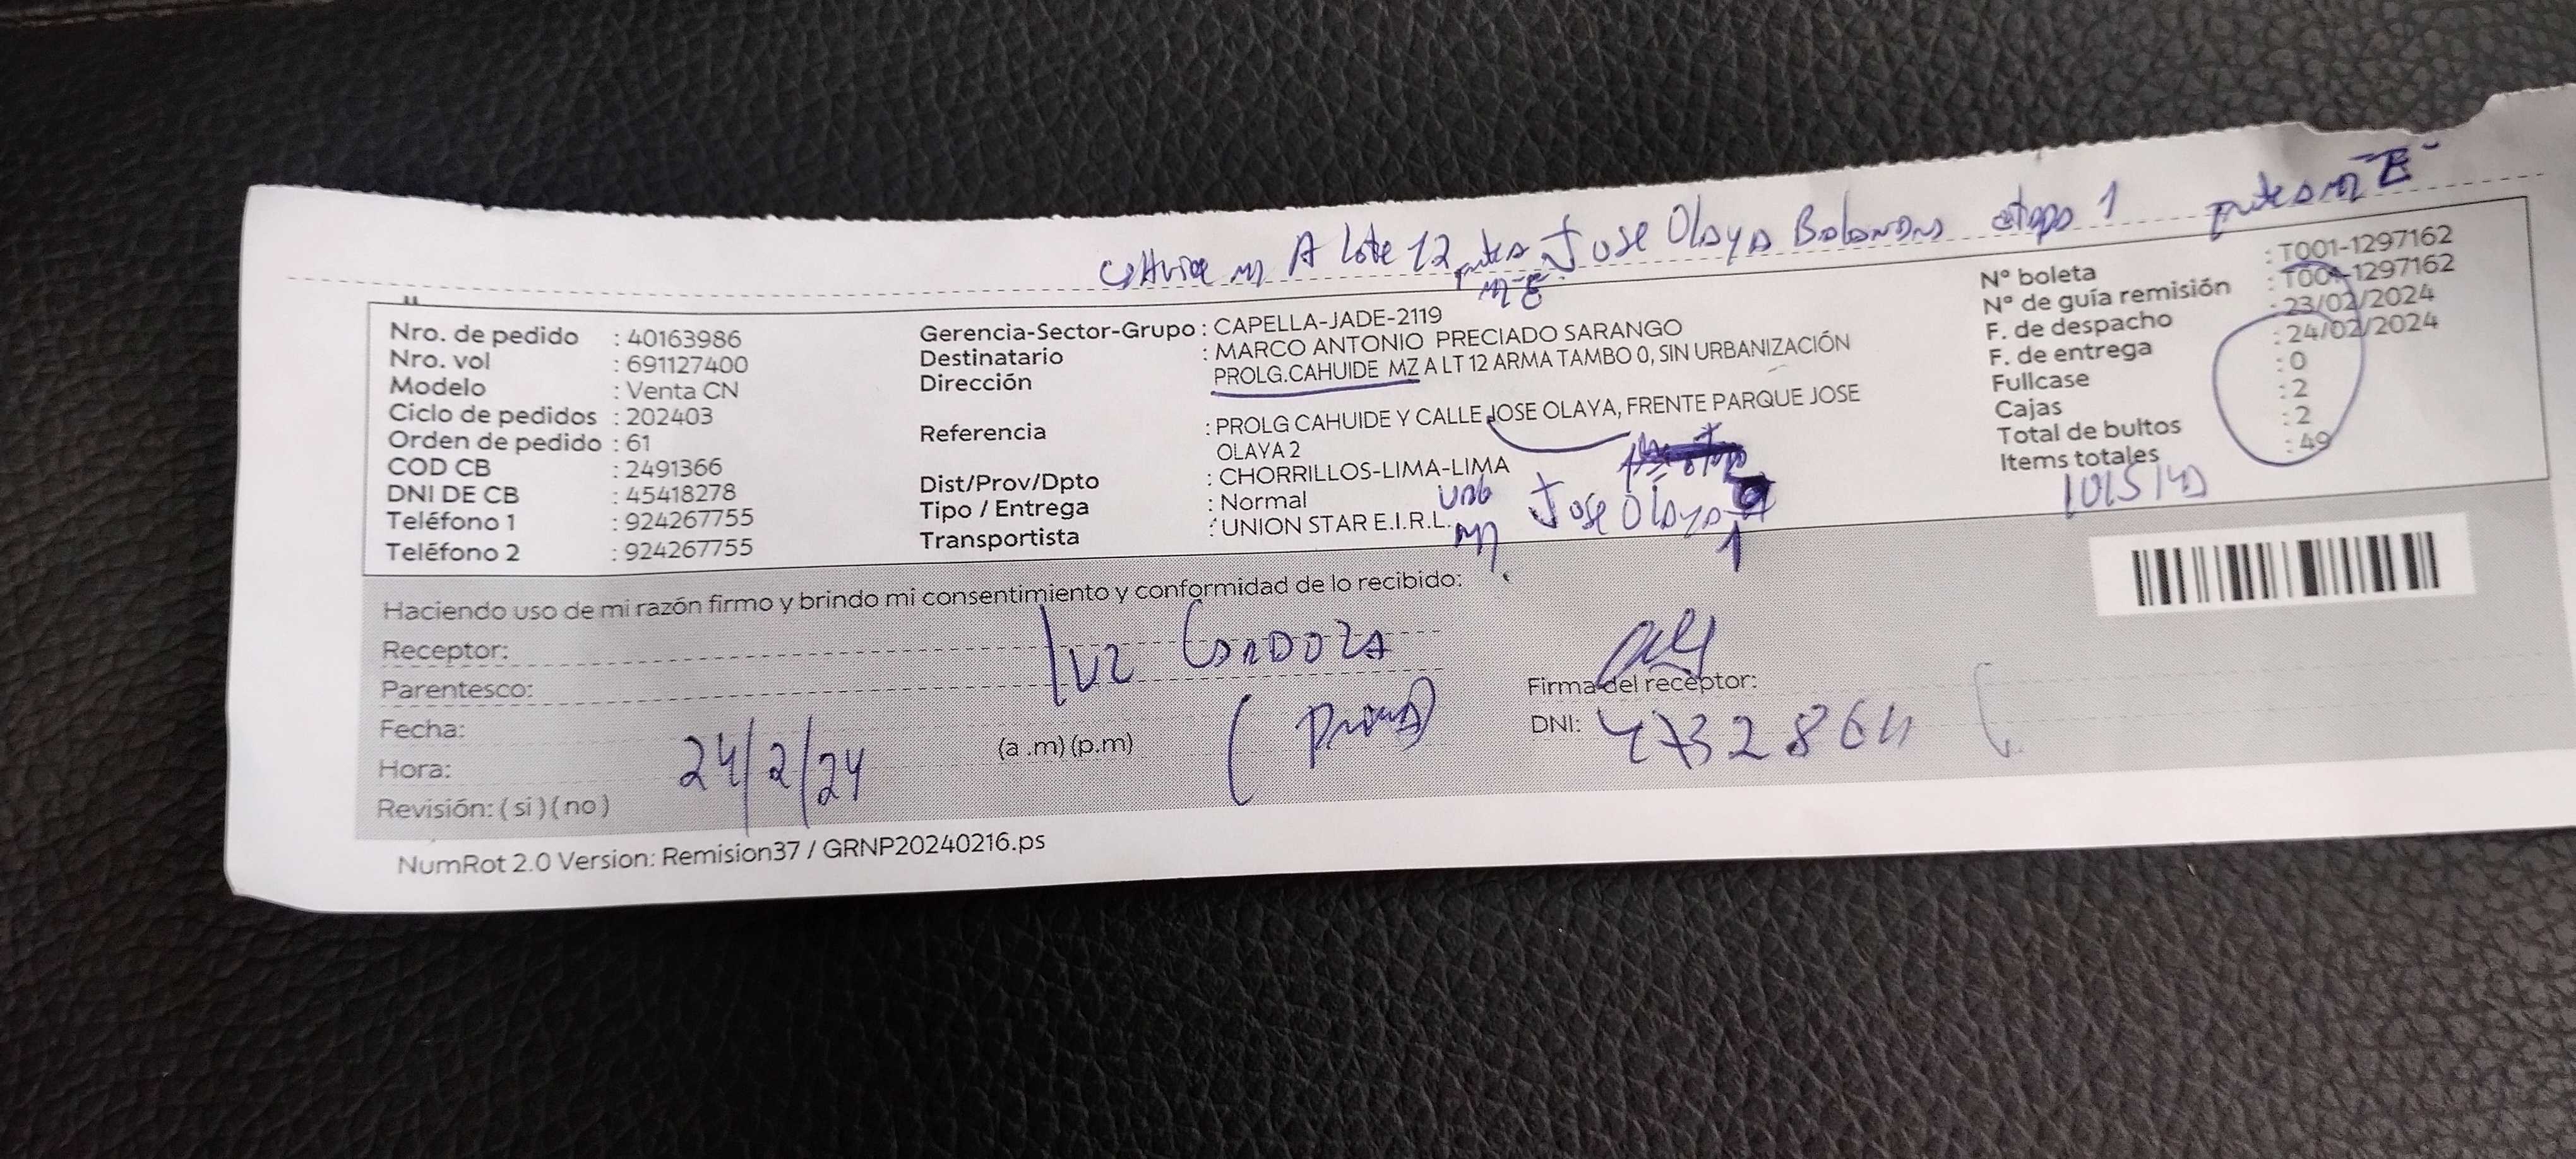 A Lote 12 Jose Olaya etapa 1
Nro. de pedido : 40163986
Nro. vol : 691127400
Modelo : Venta CN
Ciclo de pedidos : 202403
Orden de pedido : 61
COD CB : 2491366
DNI DE CB : 45418278
Teléfono 1 : 924267755
Teléfono 2 : 924267755
Gerencia-Sector-Grupo : CAPELLA-JADE-2119
Destinatario : MARCO ANTONIO PRECIADO SARANGO
Dirección : PROLG.CAHUIDE MZ A LT 12 ARMA TAMBO 0, SIN URBANIZACIÓN
Referencia : PROLG CAHUIDE Y CALLE JOSE OLAYA, FRENTE PARQUE JOSE
OLAYA 2
Dist/Prov/Dpto : CHORRILLOS-LIMA-LIMA
Tipo / Entrega : Normal
Transportista : UNION STAR E.I.R.L.
Urb Jose Olaya
1
N° boleta : T001-1297162
N° de guía remisión : T001-1297162
F. de despacho : 23/02/2024
F. de entrega : 24/02/2024
Fullcase : 0
Cajas : 2
Total de bultos : 2
Items totales : 49
Haciendo uso de mi razón firmo y brindo mi consentimiento y conformidad de lo recibido:
Receptor: luz
Parentesco:
Fecha: 24/2/24
Hora: (a .m) (p.m)
Revisión: ( si ) ( no )
Firma del receptor:
DNI:
NumRot 2.0 Version: Remision37 / GRNP20240216.ps